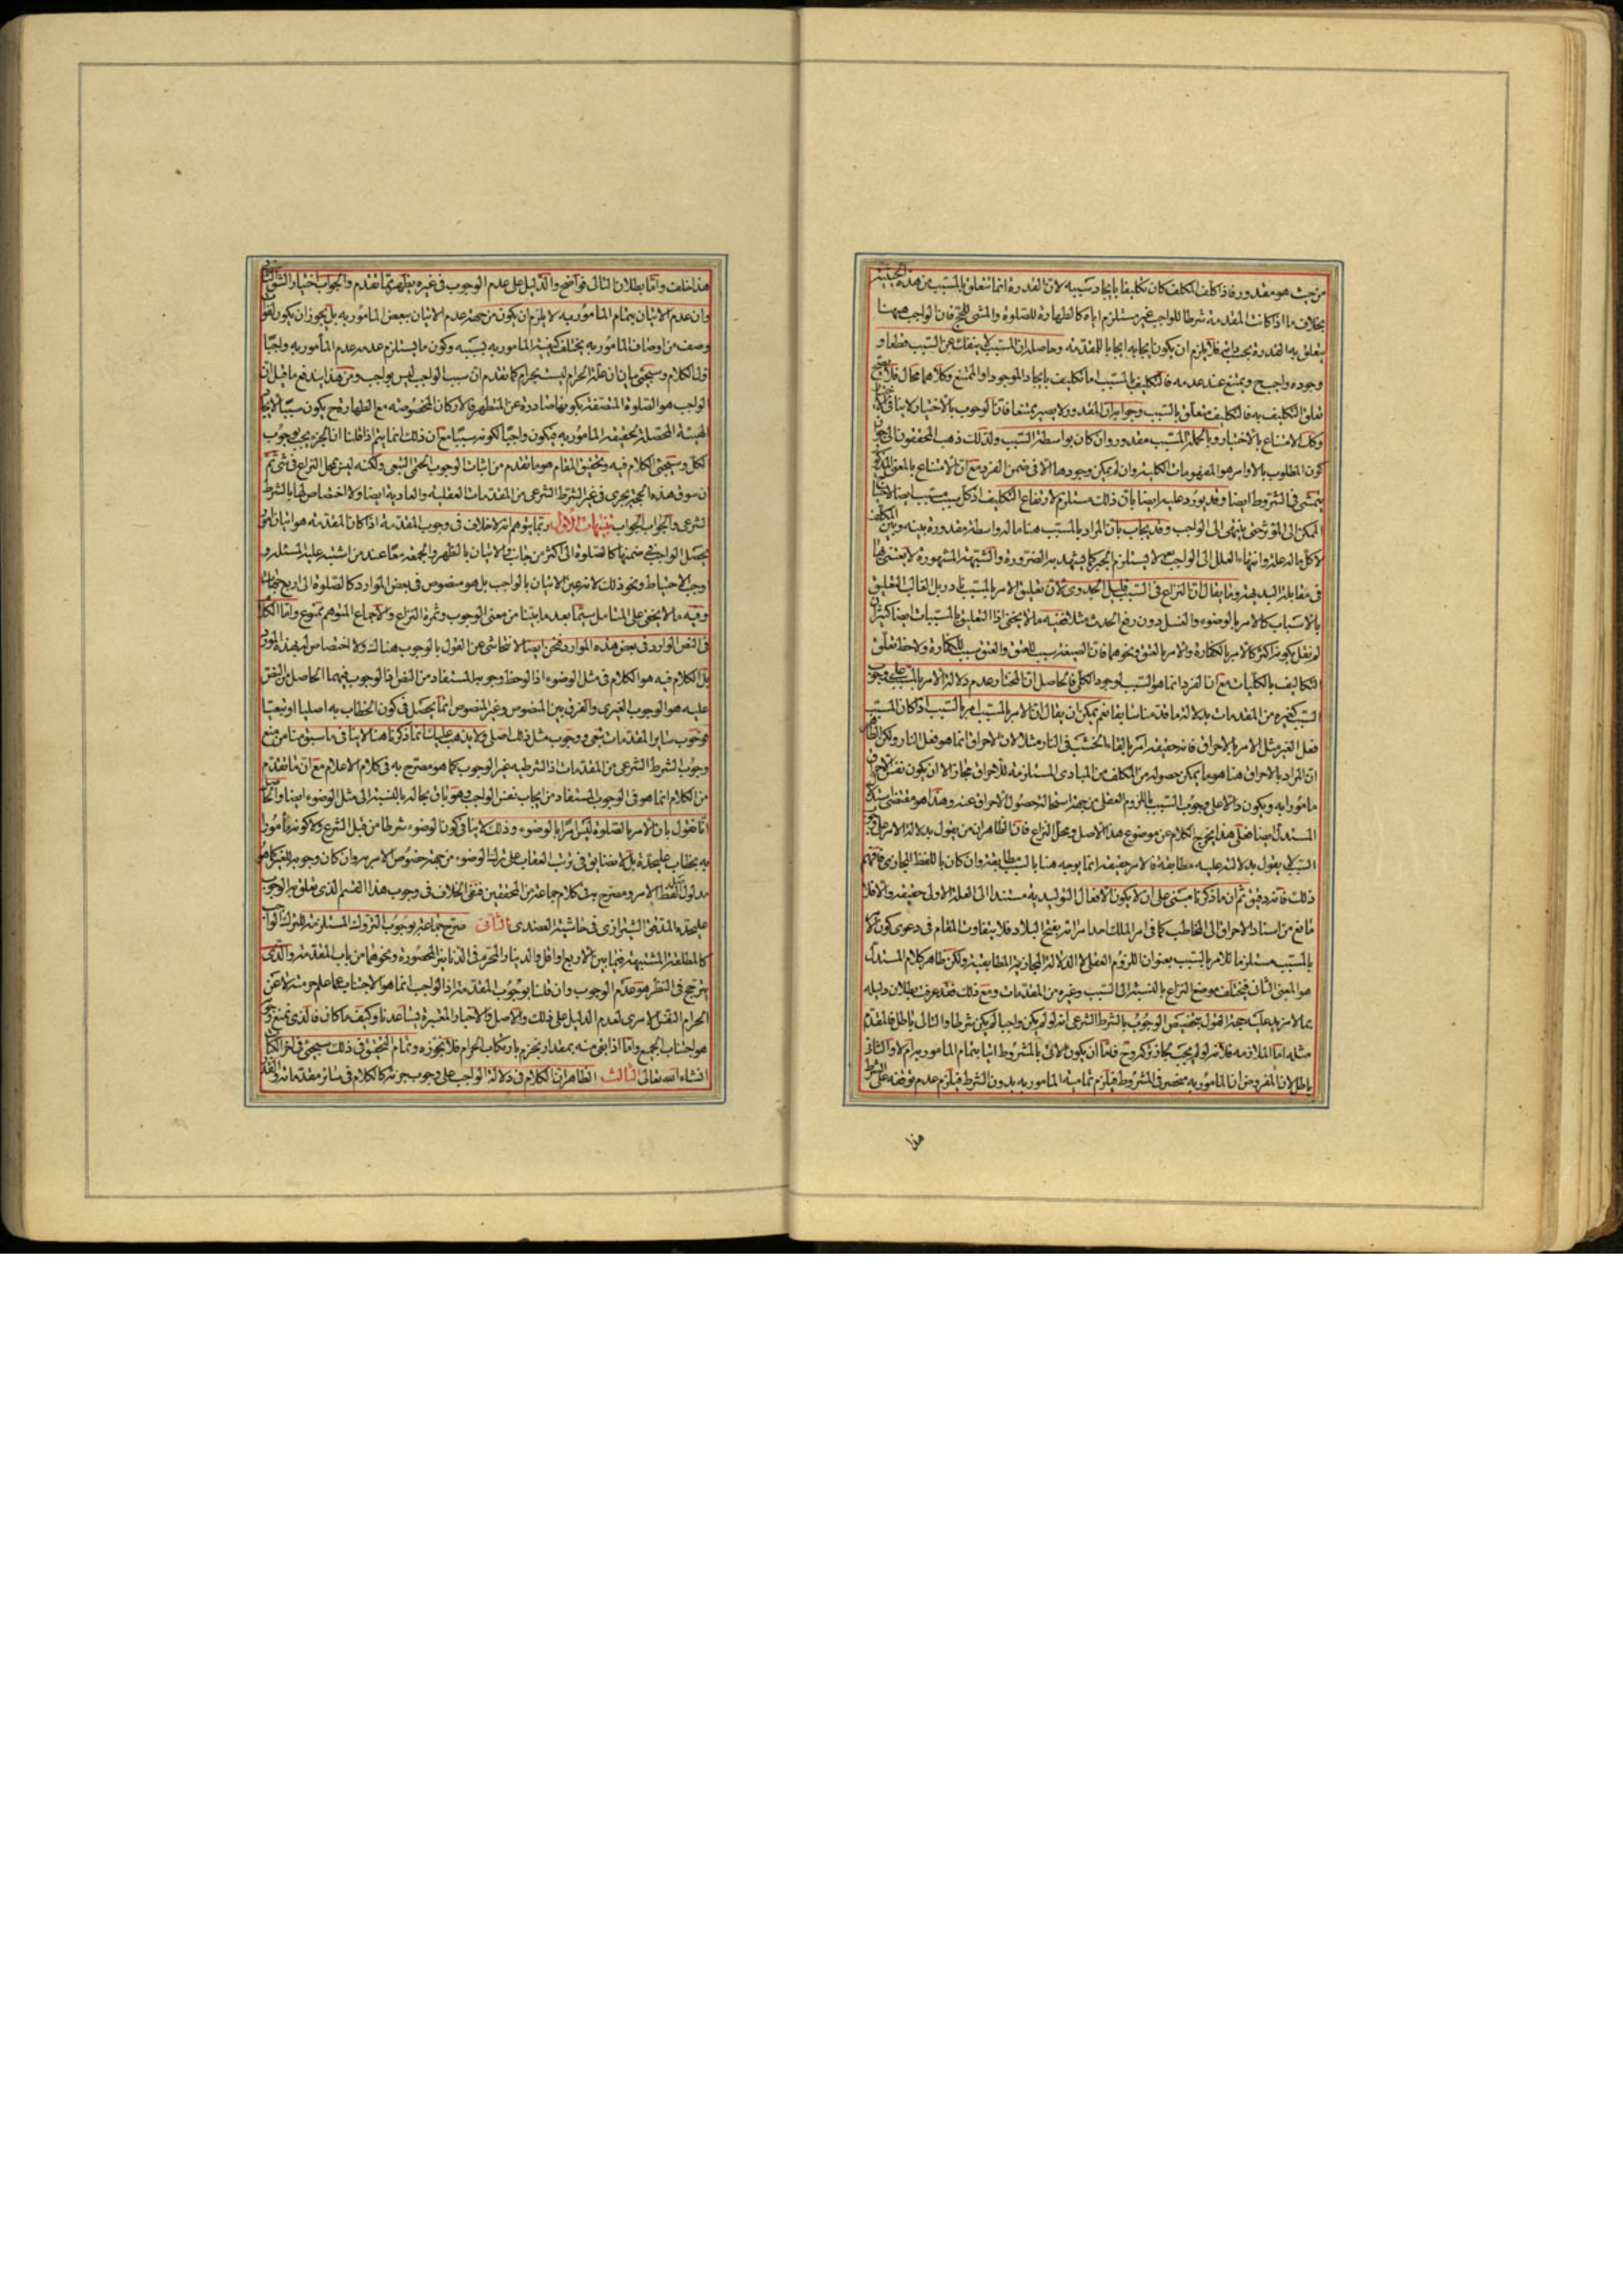 من حيث هو مقدور فاذا كلف المكلف كان تكليفا بايجاد سببه لان القدرة انما تتعلق بالمسبب من هذه الحيثية
بخلاف ما اذا كانت المقدمة شرطا للواجب غير مستلزم اياه كالطهارة للصلوة والمشى للحج فان الواجب ههنا
يتعلق به القدرة بحسب ذاته فلا يلزم ان يكون ايجابه ايجابا للمقدمة وحاصله ان المسبب لا ينفك عن السبب قطعا و
وجوده واجب ويمتنع عند عدمه فالتكليف بالمسبب اما تكليف بايجاد الموجود او الممتنع وكلاهما محال فلا
تعلق التكليف به فالتكليف متعلق بالسبب وجوابه ان المقدور لا يصير ممتنعا فان الوجوب بالاختيار لا ينافى
وكك الامتناع بالاختيار وبالجملة المسبب مقدور وان كان بواسطة السبب ولذلك ذهب المحققون الى جواز
كون المطلوب بالاوامر هو المفهومات الكلية وان لم يمكن وجودها الا فى ضمن الفرد مع ان الامتناع بالمعنى
يتمشى فى الشروط ايضا وقد يورد عليه ايضا بان ذلك مستلزم لارتفاع التكليف اذ كل سبب مسبب ايضا
الممكن الى المؤثر حتى ينتهى الى الواجب وقد يجاب بان المراد بالمسبب هنا ماله واسطة مقدورة بينه وبين المكلف
لا كل ماله علة وانتهاء العلل الى الواجب لا يستلزم الجبر كما يشهد به الضرورة والشبهة المشهورة لا يعتنى بها
فى مقابلة البديهة وما يقال ان النزاع فى السبب قليل الجدوى لان تعليق الامر بالمسبب نادر بل الغالب التعليق
بالاسباب كالامر بالوضوء والغسل دون رفع الحدث مثلا ففيه ما لا يخفى اذا التعليق بالمسببات ايضا كثير ان
لم نقل بكونه اكثر كالامر بالكفارة والامر بالعتق ونحوهما فان الصيغة سبب للعتق والعتق سبب للكفارة ولاحظ تعلق
التكاليف بالكليات مع ان الفرد انما هو السبب لوجود الكلى فالحاصل ان المختار عدم دلالة الامر بالمسبب على وجوب
السبب كغيره من المقدمات بدلالة ما قدمنا سابقا نعم يمكن ان يقال ان الامر بالمسبب امر بالسبب اذا كان المسبب
فعل الغير مثل الامر بالاحراق فانه حقيقة امر بالقاء الخشب فى النار مثلا لان الاحراق انما هو فعل النار ولكن
ان المراد بالاحراق هنا هو ما يمكن حصوله من المكلف من المبادى المستلزمة للاحراق مجازا لا ان يكون نفس الاحراق
مامورا به ويكون دالا على وجوب السبب باللزوم العقلى من جهة استحالة حصول الاحراق عنه وهذا هو مقتضى
المستدل ايضا فعلى هذا يخرج الكلام عن موضوع هذا الاصل ومحل النزاع فان الظاهر ان من يقول بدلالة الامر على
السببى يقول بدلالته عليه مطابقة فالامر حقيقة انما يوجه هنا بالسبب مطابقة وان كان باللفظ المجازى فافهم
ذلك فانه دقيق ثم ان ما ذكرنا مبنى على ان لا يكون الافعال التوليدية مستندا الى العلة الاولى حقيقة والا فلا
مانع من اسناد الاحراق الى المخاطب كما فى امر الملك احد امرائه بفتح البلاد فلا يتفاوت المقام فى دعوى كون الامر
بالمسبب مستلزما للامر بالسبب بعنوان اللزوم العقلى لا الدلالة المجازية المطابقية ولكن ظاهر كلام المستدل
هو المعنى الثانى فيختلف موضع النزاع بالنسبة الى السبب وغيره من المقدمات ومع ذلك فقد عرفت بطلان دليله
بما لا مزيد عليه حجة القول بتخصيص الوجوب بالشرط الشرعى انه لو لم يكن واجبا لم يكن شرطا والتالى باطل فالمقدم
مثله اما الملازمة فلانه لو لم يجب لجاز تركه وح فاما ان يكون الاتى بالمشروط اتيا بتمام المامور به ام لا والثانى
باطل لان المفروض ان المامور به منحصر فى المشروط فيلزم تمامية المامور به بدون الشرط فيلزم عدم توقفه على الشرط
هذا
هذا خلف واما بطلان التالى فواضح والدليل على عدم الوجوب فى غيره يظهر مما تقدم والجواب اختيار الشق
وان عدم الاتيان بتمام المامور به لا يلزم ان يكون من جهة عدم الاتيان ببعض المامور به بل يجوز ان يكون لفوات
وصف من اوصاف المامور به يختلف كيفية المامور به بسببه وكون ما يستلزم عدمه عدم المأمور به واجبا
اول الكلام وسيجئ بيان ان علة الحرام ليست بحرام كما تقدم ان سبب الواجب ليس بواجب ومن هذا يندفع ما قيل ان
الواجب هو الصلوة المتصفة بكونها صادرة عن المتطهر فالاركان المخصوصة مع الطهارة ح يكون سببا لايجاد
الهيئة المحصلة لحقيقة المامور به فيكون واجبا لكونه سببا مع ان ذلك انما يتم اذا قلنا ان الجزء يجب بوجوب
الكل وسيجئ الكلام فيه وتحقيق المقام هو ما تقدم من اثبات الوجوب الحتمى التبعى ولكنه ليس محل النزاع فى شئ ثم
ان سوق هذه الحجة يجرى فى غير الشرط الشرعى من المقدمات العقلية والعادية ايضا ولا اختصاص لها بالشرط
الشرعى والجواب الجواب تنبيهات الاول ربما يتوهم انه لا خلاف فى وجوب المقدمة اذا كان المقدمة هو اتيان امور
يحصل الواجب فى ضمنها كالصلوة الى اكثر من جانب والاتيان بالظهر والجمعة معا عند من اشتبه عليه المسئلة و
وجب الاحتياط ونحو ذلك لانه عين الاتيان بالواجب بل هو منصوص فى بعض الموارد كالصلوة الى اربع جهات
وفيه ما لا يخفى على المتامل سيما بعد ما بينا من معنى الوجوب وثمرة النزاع والاجماع المتوهم ممنوع واما الكلام
فى النص الوارد فى بعض هذه الموارد فنحن ايضا لا نتحاشى عن القول بالوجوب هناك ولا اختصاص له بهذه الموارد
بل الكلام فيه هو الكلام فى مثل الوضوء اذا لوحظ وجوبها المستفاد من النص فالوجوب فيهما الحاصل من النص
عليه هو الوجوب الغيرى والفرق بين المنصوص وغير المنصوص انما يحصل فى كون الخطاب به اصليا او تبعيا
فوجوب سائر المقدمات تبعى ووجوب مثل ذلك اصلى ولا يذهب عليك ان ما ذكرنا هنا لا ينافى ما سبق منا من منع
وجوب الشرط الشرعى من المقدمات اذ الشرطية غير الوجوب كما هو مصرح به فى كلام الاعلام مع ان ما تقدم
من الكلام انما هو فى الوجوب المستفاد من ايجاب نفس الواجب وهو باق بحاله بالنسبة الى مثل الوضوء ايضا والحاصل
انا نقول بان الامر بالصلوة ليس امرا بالوضوء وذلك لا ينافى كون الوضوء شرطا من قبل الشرع ولا كونه مأمورا
به بخطاب عليحدة بل لا نضايق فى ترتب العقاب على ترك الوضوء من جهة خصوص الامر به وان كان وجوبه للغير كما هو
مدلول لفظ الامر ومصرح به فى كلام جماعة من المحققين فنفى الخلاف فى وجوب هذا القسم الذى تعلق به الوجوب
عليحدة المدقق الشيرازى فى حاشية العضدى الثانى صرح جماعة بوجوب التروك المستلزمة للترك الواجب
كالمطلقة المشتبهة فيما بين الاربع او اقل والدينار المحرم فى الدنانير المحصورة ونحوهما من باب المقدمة والذى
يترجح فى النظر هو عدم الوجوب وان قلنا بوجوب المقدمة اذ الواجب انما هو الاجتناب عما علم حرمته لا عن
الحرام النفس الامرى لعدم الدليل على ذلك والاصل والاخبار المعتبرة يساعدنا وكيف ما كان فالذى نمنع وجوبه
هو اجتناب الجميع واما اذا بقى منه بمقدار نجزم بارتكاب الحرام فلا نجوزه وتمام التحقيق فى ذلك سيجئ فى اخر الكتاب
انشاء الله تعالى الثالث الظاهر ان الكلام فى دلالة الواجب على وجوب جزئه كالكلام فى سائر مقدماته